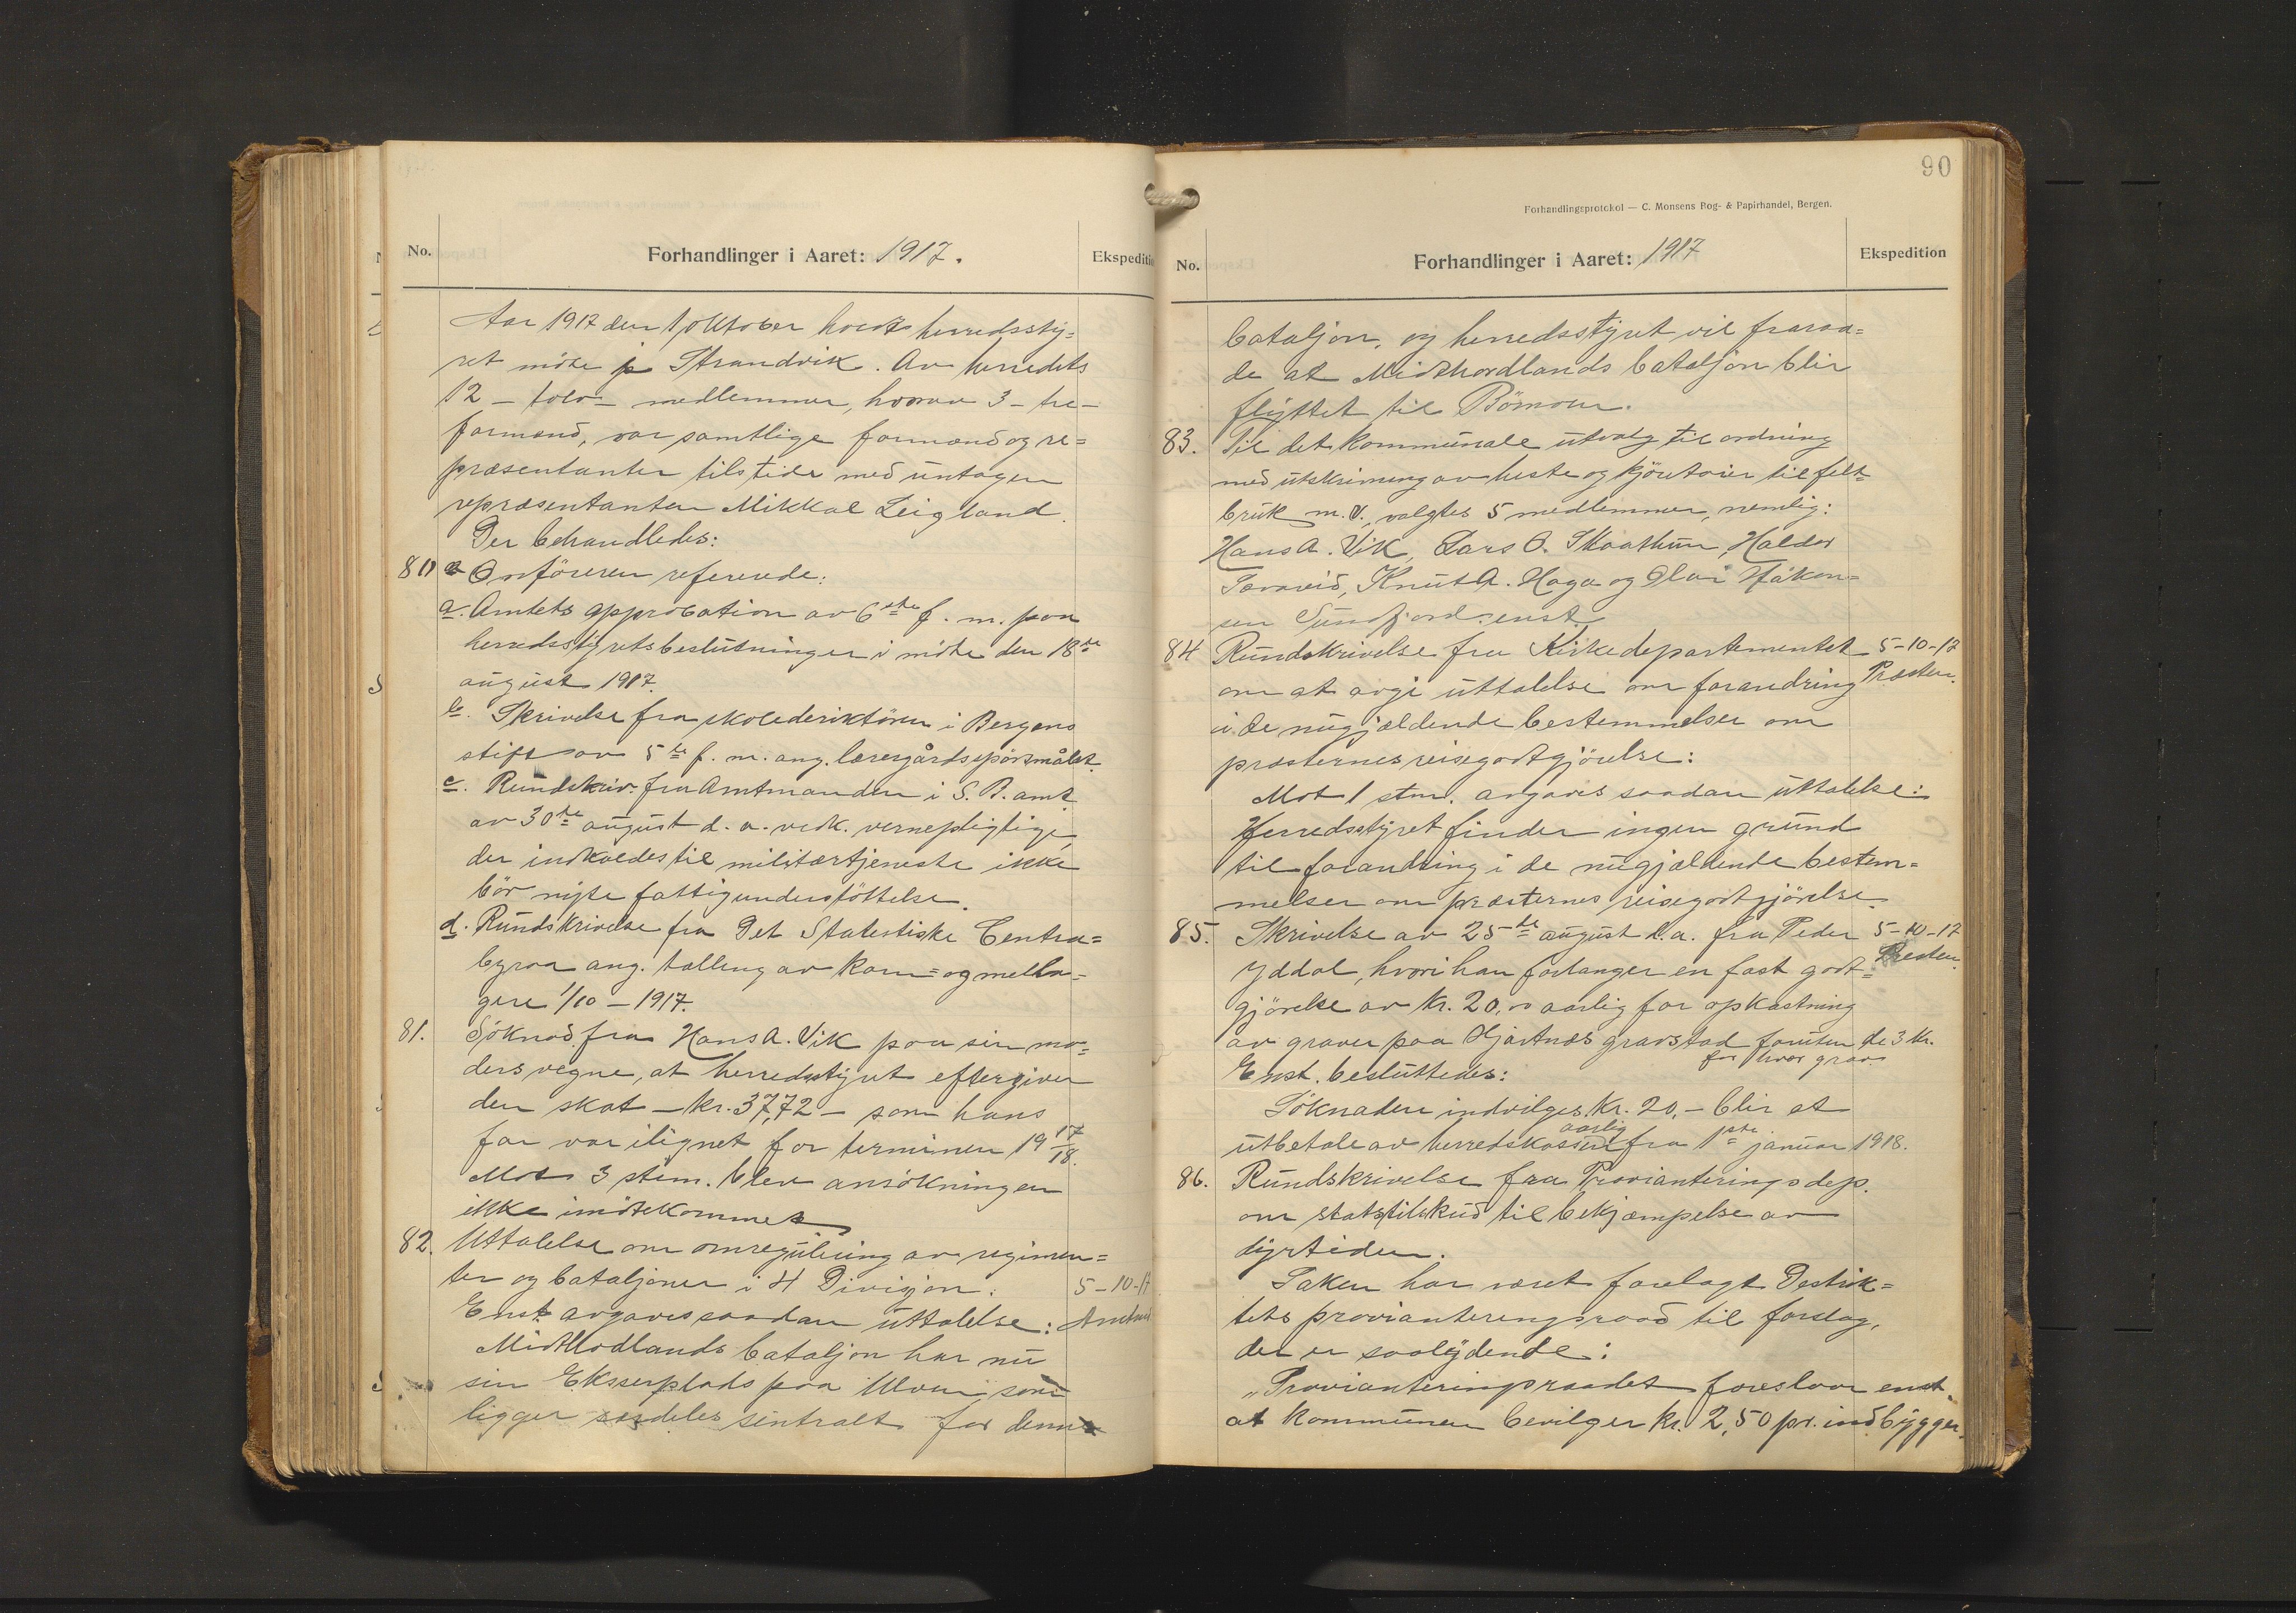 No.
Forhandlinger i Aaret: 1917.
Ekspediti
Aar 1917 den 1 oktober holdt herredssty=
ret møte i Strandvik. Av herredets
12 – tolv – medlemmer, hvorav 3 – tre –
formænd, var samtlige formænd og re=
præsentanter tilstede med untagen
repræsentanten Mikkal Leigland.
Der behandledes:
80 Ordføreren refererede:
a. Amtets approbation av 6te f. m. paa
herredsstyrets beslutninger i møte den 18de
august 1917.
b. Skrivelse fra skolederiktøren i Bergens
stift av 5te f. m. ang. læregårdsspørsmålet.
c. Rundskriv. fra Amtmanden i S. B. amt
av 30te august d. a. vedk. vernepligtige,
der indkaldes til militærtjeneste ikke
bør nyte fattigunderstøttelse.
d. Rundskrivelse fra Det Statestiske Centra=
byraa ang. tælling av korn= og mella=
gere 1/10 – 1917.
81. Søknad fra Hans A. Vik paa sin mo=
ders vegne, at herredsstyret eftergiver
den skat – kr. 37,72 – som hans
far var ilignet for terminen 1917/18.
Mot 3 stem. blev ansøkningen
ikke imøtekommet
82. Uttalelse om omregulering av regimen=
ter og bataljoner i 4 Divisjon.
5-10-17
Enst. avgaves saadan uttalelse:
Amtmd
Midthordlands bataljon har nu
sin Ekserplads paa Ulven, som
ligger særdeles sentralt for denne
90
Forhandlingsprotokol — C. Monsens Bog- & Papirhandel, Bergen.
No.
Forhandlinger i Aaret: 1917
Ekspedition
bataljon, og herredsstyret vil fraraa=
de at Midthordlands bataljon blir
flyttet til Bömoen.
83. Til det kommunale utvalg til ordning
med utskrivning av heste og kjøretøier til felt=
bruk m. v., valgtes 5 medlemmer, nemlig:
Hans A. Vik, Lars O. Skaathun, Haldor
Tveravid, Knut A. Haga og Olai Håkon=
sen Sundfjord enst.
84 Rundskrivelse fra Kirkedepartementet
5-10-17
om at avgi uttalelse om forandring
Presten.
i de nugjældende bestemmelser om
præsternes reisegodtgjørelse:
Mot 1 stm. avgaves saadan uttalelse:
Herredsstyret finder ingen grund
til forandring i de nugjældende bestem=
melser om præsternes reisegodtgjørelse.
85. Skrivelse av 25de august d.a. fra Peder
5-10-17
Yddal, hvori han forlanger en fast godt=
Presten.
gjørelse av kr. 20,00 aarlig for opkastning
av graver paa Hjartnæs gravstad foruten de 3 kr.
for hver grav.
Enst. besluttedes:
Søknaden indvilges. Kr. 20,– blir at
utbetale av herredskassen aarlig fra 1ste januar 1918.
86. Rundskrivelse fra Provianteringsdep.
om statstilskud til bekjæmpelse av
dyrtiden.
Saken har været forelagt Destrik=
tets provianteringsraad til forslag,
der er saalydende:
"Provianteringsraadet foreslaar enst.
at kommunen bevilger kr. 2,50 pr. indbygger.